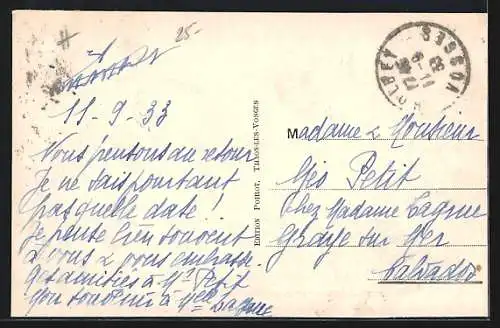 25-
11-9-33
Nous pensons au retour
Je ne sais pourtant
pas quelle date !
Je pense bien souvent
à vous & vous embrasse
Ges amitiés à Mr Petit
Mon souvenir à Mme Cagnie
EDITION POIROT, THAON-LES-VOSGES
GOLBEY
VOSGES
Madame & Monsieur
Géo Petit
Chez Madame Cagnie
Graye sur Mer
Calvados